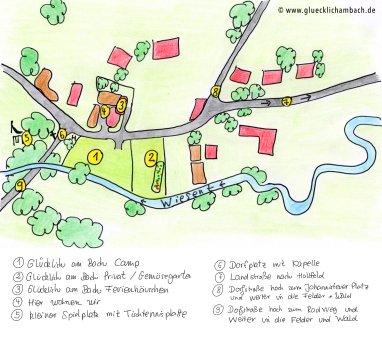 © www.gluecklichambach.de
6
H
4
3
8
7
5
1
2
9
Wiesent
① Glücklich am Bach Camp
② Glücklich am Bach Privat / Gemüsegarten
③ Glücklich am Bach Ferienhäuschen
④ Hier wohnen wir
⑤ kleiner Spielplatz mit Tischtennisplatte
⑥ Dorfplatz mit Kapelle
⑦ Landstraße nach Hollfeld
⑧ Dorfstraße hoch zum Platz
und weiter in die Felder + Wald
⑨ Dorfstraße hoch zum Radweg und
weiter in die Felder und Wald